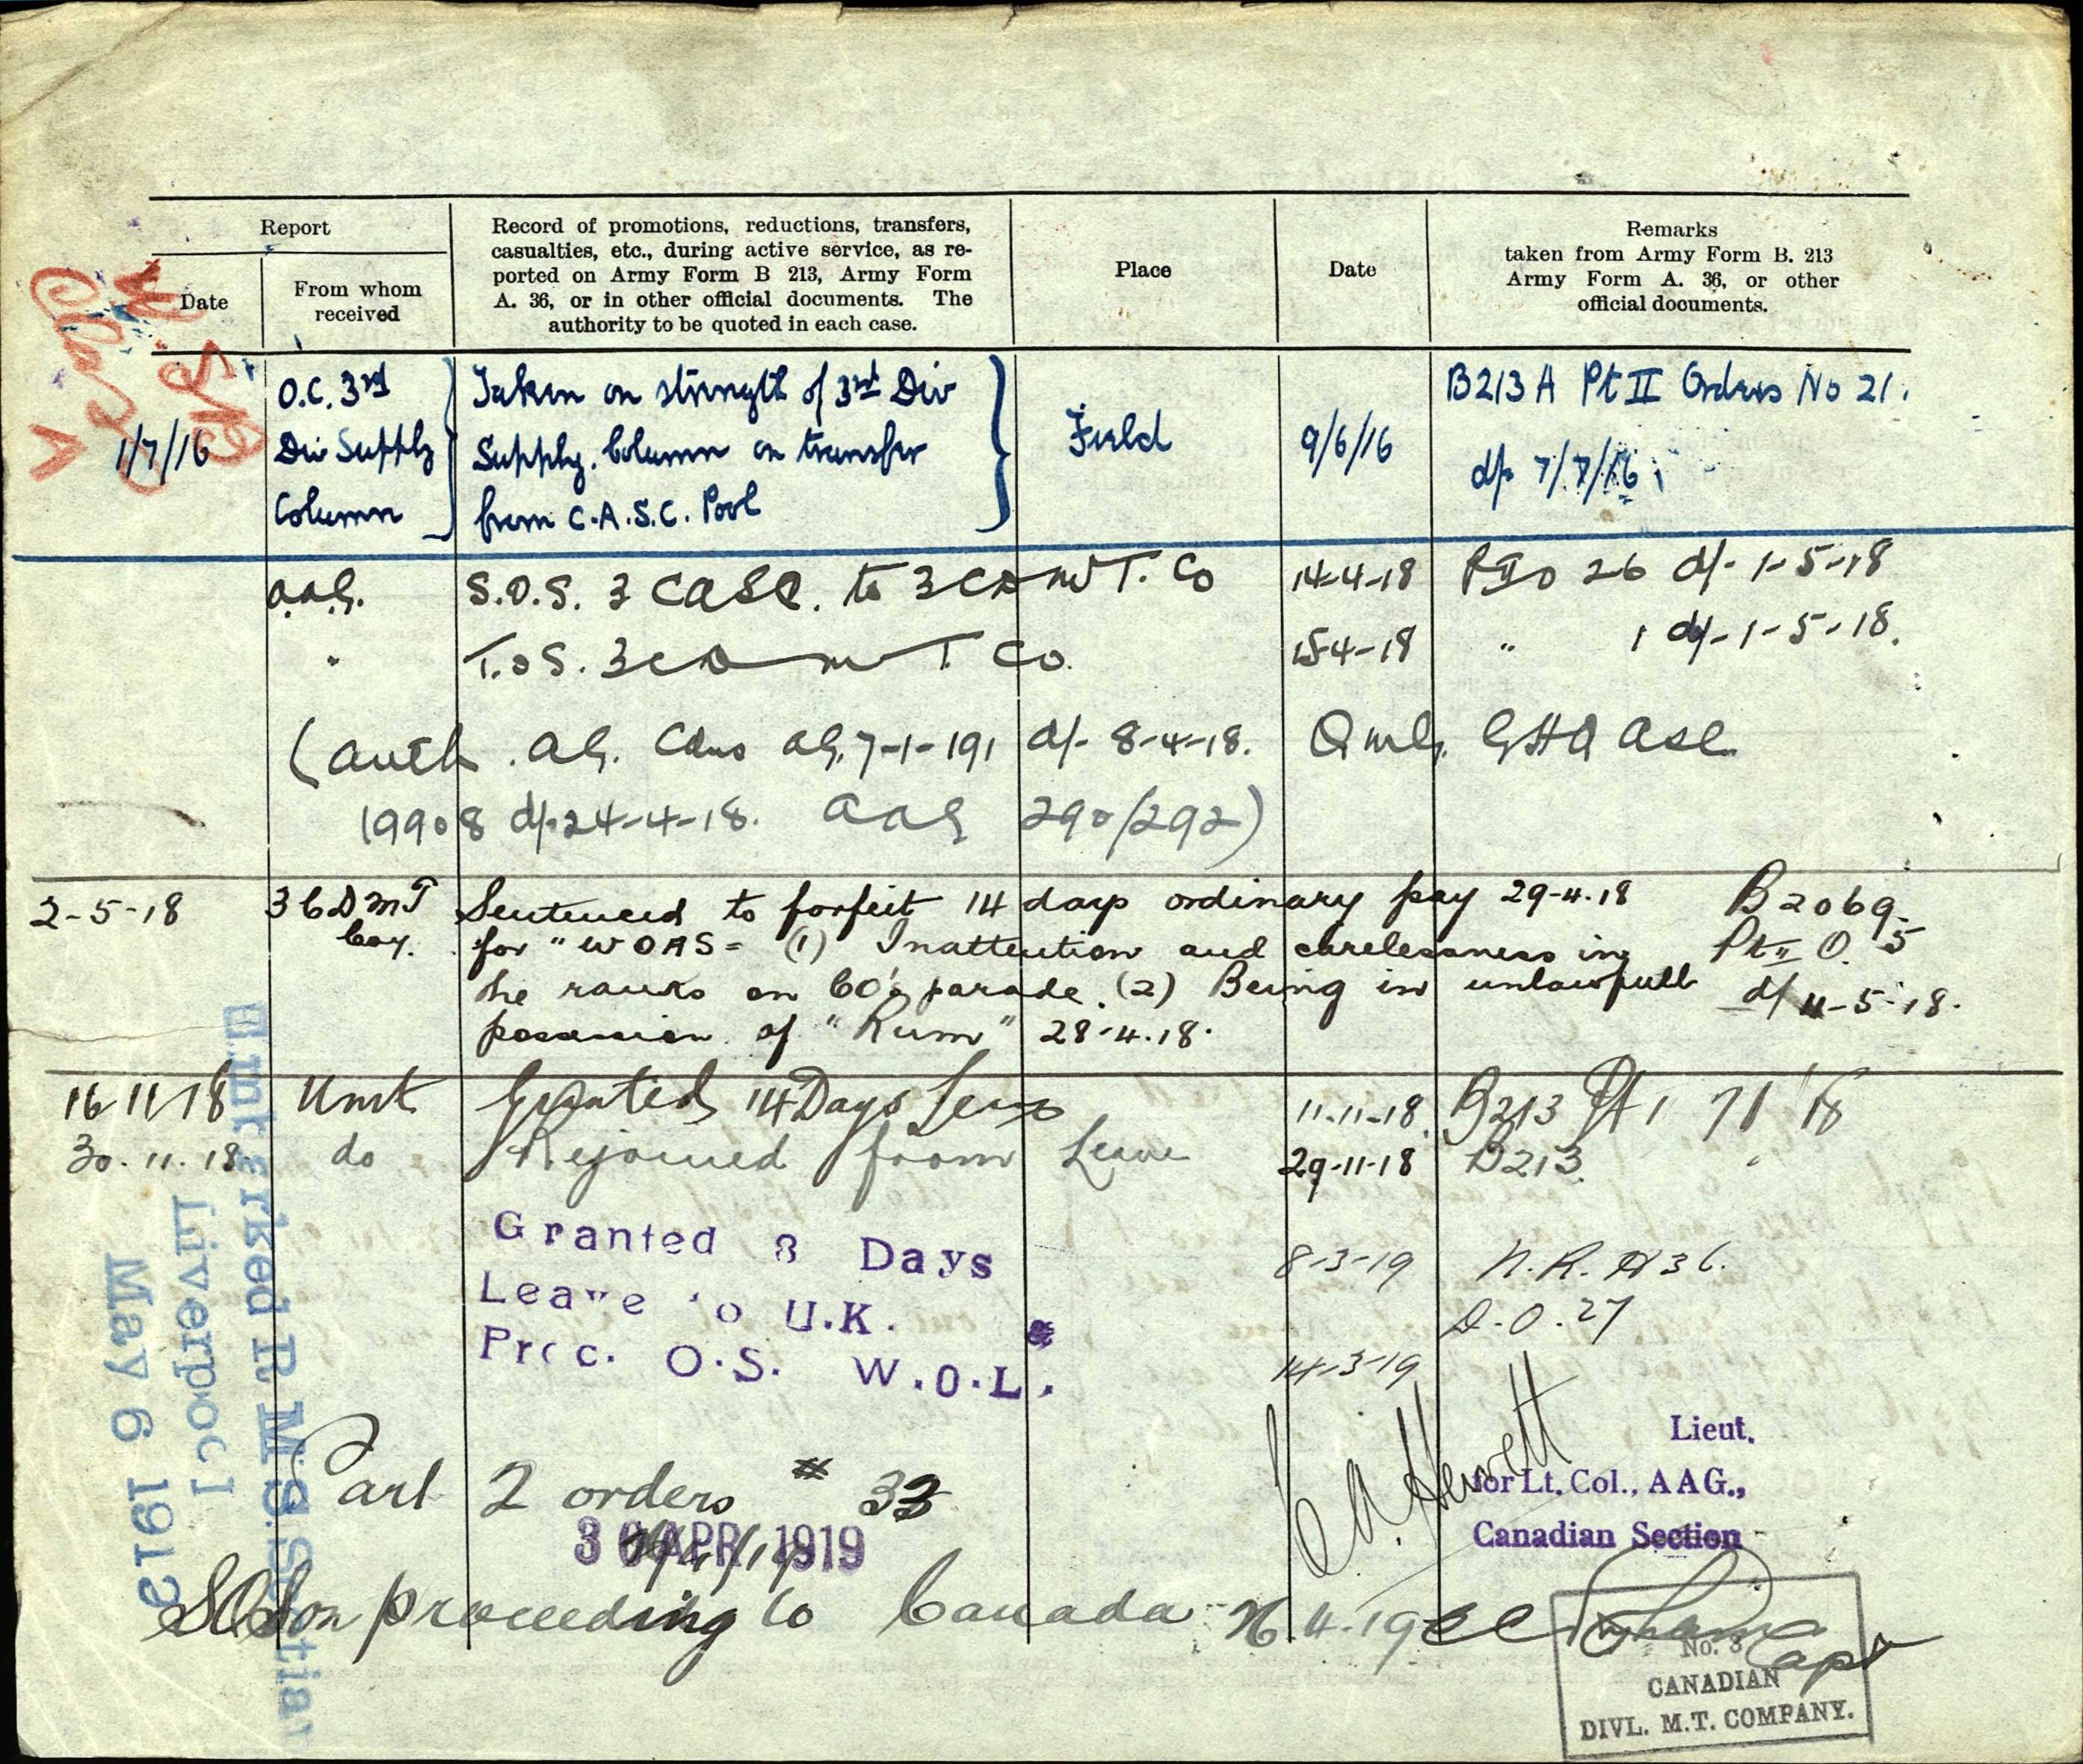 Report
Date
From whom
received
Record of promotions, reductions, transfers,
casualties, etc., during active service, as re-
ported on Army Form B 213, Army Form
A. 36, or in other official documents. The
authority to be quoted in each case.
Place
Date
Remarks
taken from Army Form B. 213
Army Form A. 36, or other
official documents.
1/7/16
O.C. 3rd
Div Supply
Column
Taken on strength of 3rd Div
Supply. Column on transfer
from C.A.S.C. Pool
Field
9/6/16
B213A Pt II Orders No 21.
d/- 7/7/16
a.a.G. S.O.S. 3 CASC. to 3 CD M T. Co 14-4-18 PIIO 26 d/- 1-5-18
" T.O.S. 3 CD M T Co. 15-4-18 " 1 d/- 1-5-18.
(auth. AG. Cdns AG. 7-1-191 d/- 8-4-18. QMG. GHQ ASC
19908 d/- 24-4-18. AAG 290/292)
2-5-18 3 CDMT Sentenced to forfeit 14 days ordinary pay 29-4-18 B2069.
Coy. for "WOAS= (1) Inattention and carelessness in Pt II O. 5
the ranks on Co's parade. (2) Being in unlawfull d/ 11-5-18.
possession of "Rum" 28-4-18.
16 11/18 Unit Granted 14 Days Leave 11-11-18. B213 Pt 1 71 18
30.11.18 do Rejoined from Leave 29-11-18 B213.
Granted 8 Days
Leave to U.K.
Proc. O.S. W.O.L.
8-3-19 N.R. A36.
D.O. 27
14-3-19
C.A. Hewett
Lieut.
for Lt. Col., AAG.,
Canadian Section
Part 2 orders # 33
30 APR 1919
SOS on proceeding to Canada 4.19 Capt
No. 3
CANADIAN
DIVL. M.T. COMPANY.
Embarked R.M.S.
Liverpool
May 6 1919